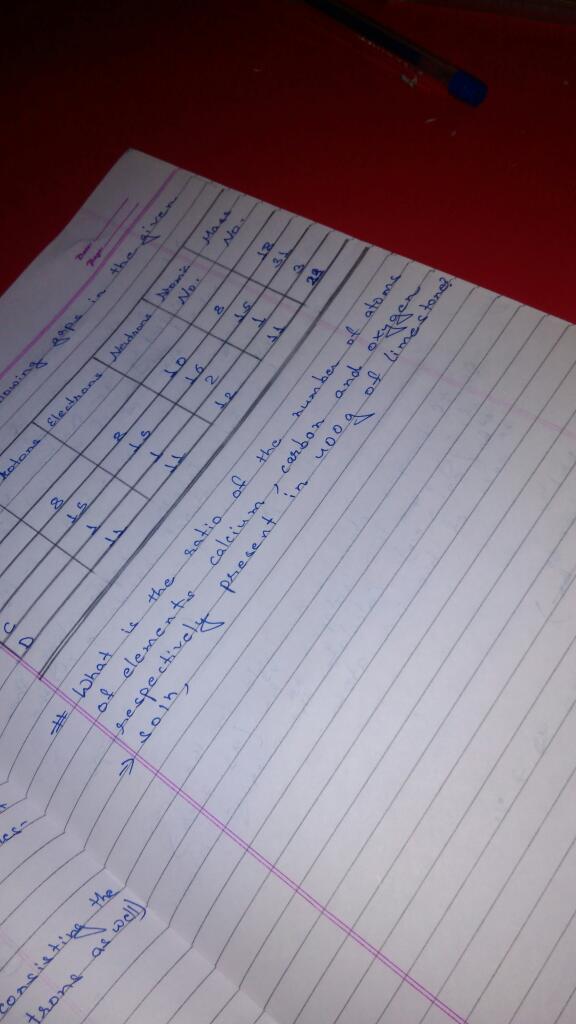 Date:
Page:
gaps in the given
Electrons Neutrons Atomic No. Mass No.
8 8 10 8 18
15 15 16 15 31
C 1 1 2 1 3
D 11 11 12 11 23
# What is the ratio of the number of atoms
of elements calcium, carbon and oxygen
respectively present in 400g of limestone?
⇒ Soln,
consisting the
trons as well)